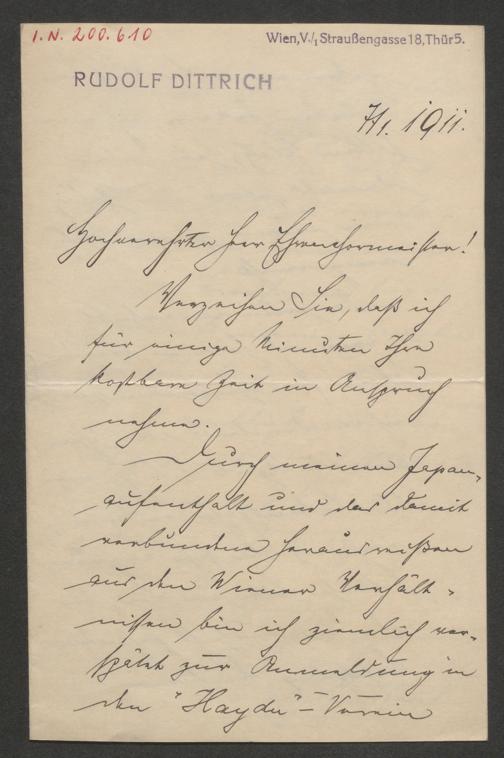 I.N. 200.610
Wien, V./1 Straußengasse 18, Thür 5.
RUDOLF DITTRICH
7/1. 1911.
Hochverehrter Herr Ehrenchormeister!
Verzeihen Sie, daß ich
für einige Minuten Ihre
kostbare Zeit in Anspruch
nehme.
Durch meinen Japan-
aufenthalt und das damit
verbundene Herausreißen
aus den Wiener Verhält-
nissen bin ich ziemlich ver-
spätet zur Anmeldung in
den "Haydn" - Verein